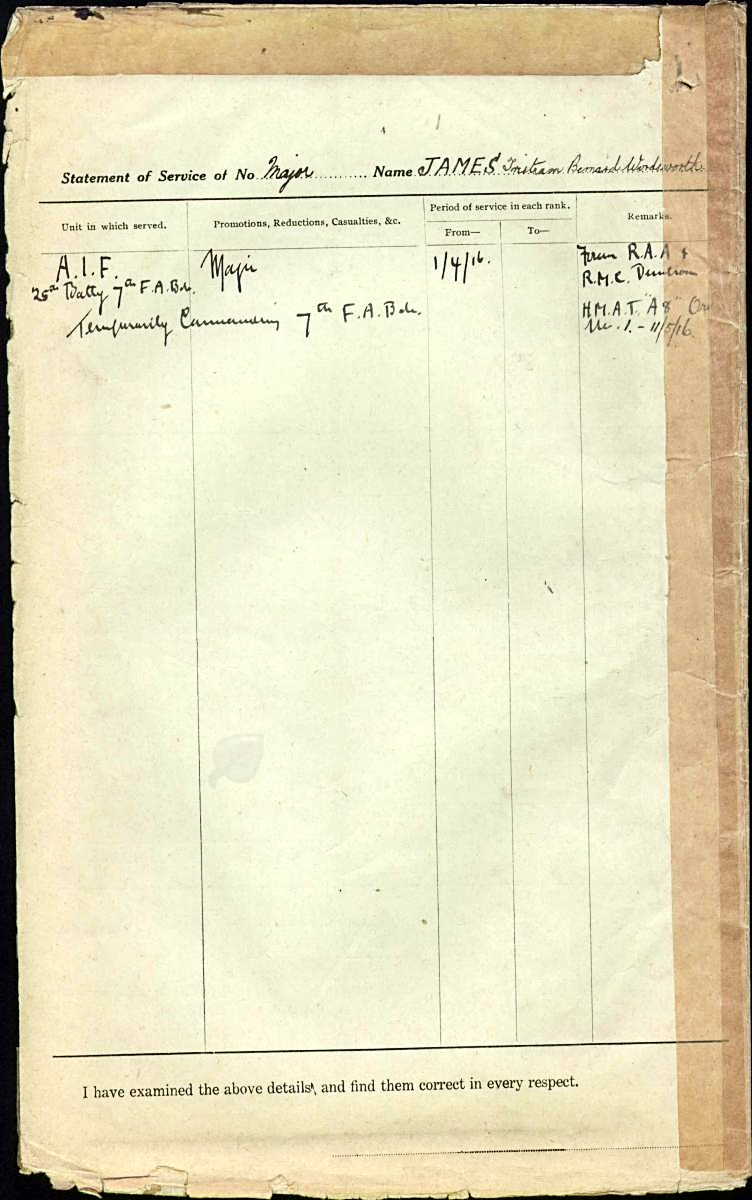 Statement of Service of No Major Name JAMES Tristram Bernard Wordsworth
Unit in which served. Promotions, Reductions, Casualties, &c. Period of service in each rank. Remarks.
From— To—
A.I.F. Major 1/4/16. From R.A.A &
25th Batty 7th F.A.Bde. R.M.C. Duntroon
Temporarily Commanding 7th F.A.Bde. H.M.A.T. "A8"
1. - 11/5/16.
I have examined the above details, and find them correct in every respect.